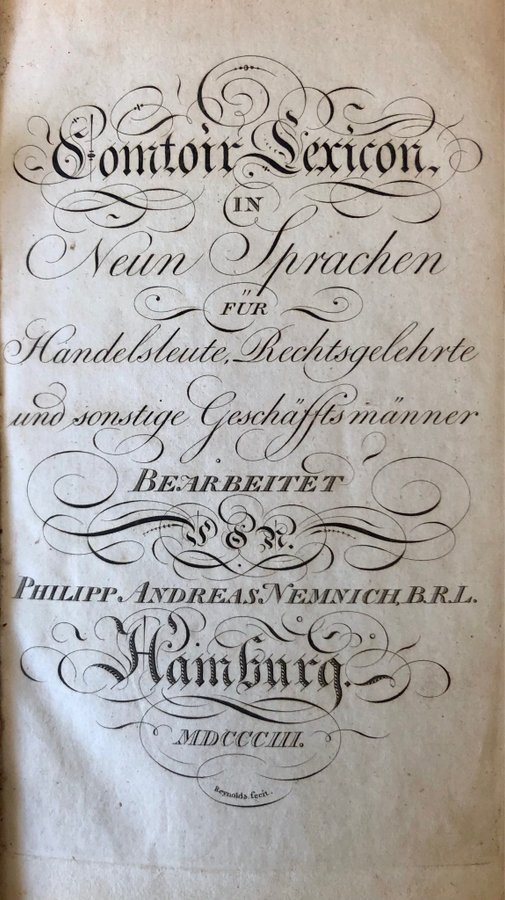 Comtoir Lexicon.
IN
Neun Sprachen
FÜR
Handelsleute, Rechtsgelehrte
und sonstige Geschäfftsmänner
BEARBEITET
VON.
PHILIPP ANDREAS NEMNICH, B.R.L.
Hamburg.
MDCCCIII.
Reynolds. fecit.